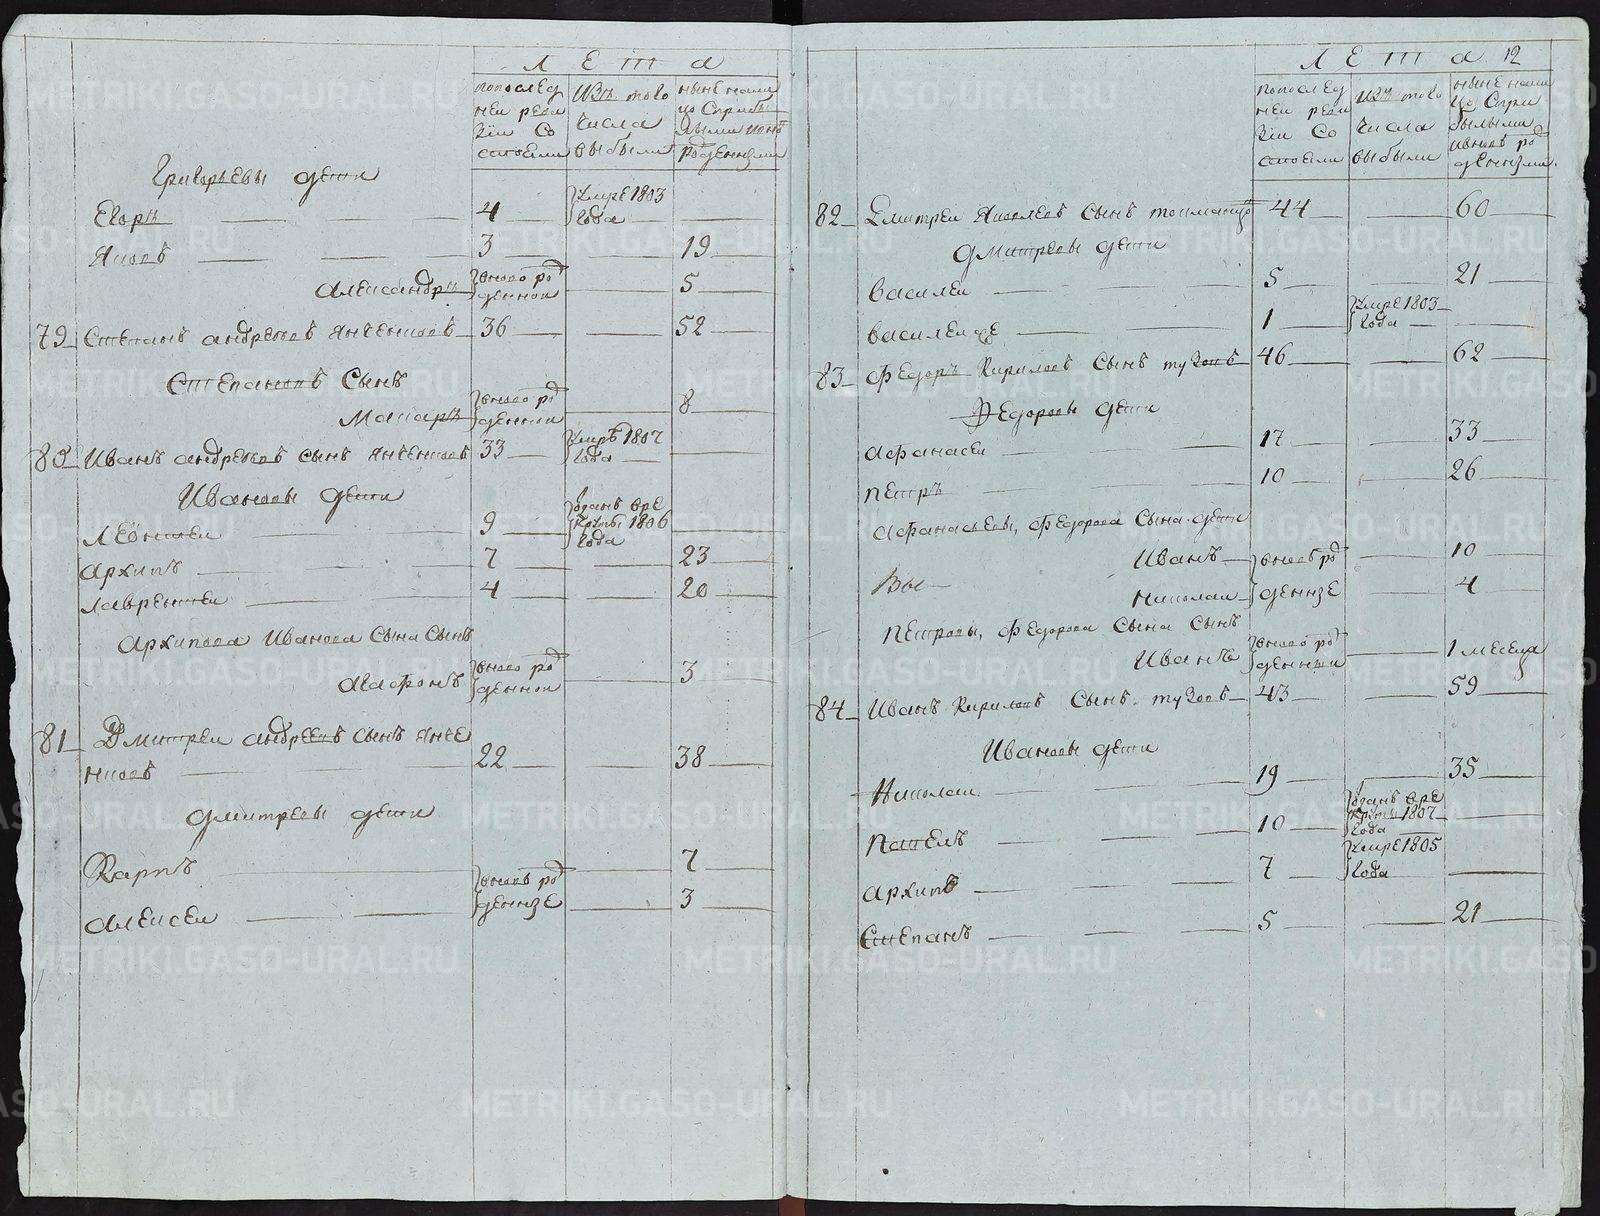 Л Е Т А
попослед
ней реви
зiи со
стояли
Изъ того
числа
выбыли
ныне нали
цо
роденными
Григорьевы дети
Егоръ 4 умре 1803
года
Яковъ 3 19
Александръ вново ро
жденной 5
79 Степанъ андреевъ Янченковъ 36 52
Степановъ Сынъ
Макаръ вново ро
жденной 8
80 Иванъ андреевъ сынъ Янченковъ 33 умре 1807
года
Ивановы дети
Леонтеи 9 зданъ вре
круты 1806
года
архипъ 7 23
лаврентеи 4 20
архипова Иванова Сына Сынъ
Агафонъ вново ро
жденной 3
81 Дмитреи андреевъ сынъ Янче
нковъ 22 38
дмитревы дети
Карпъ 7
алексеи вновь ро
жденные 3
Л Е Т А 12
попослед
ней реви
зiи со
стояли
Изъ того
числа
выбыли
ныне нали
цо с при
былыми
ивновь ро
жденными
82 Дмитреи Яковлевъ Сынъ 44 60
дмитревы дети
василеи 5 21
василеи же 1 умре 1803
года
83 Федоръ Кирилов Сынъ тузовъ 46 62
Федоровы дети
афанасеи 17 33
петръ 10 26
афанасьевы, федорова Сына дети
Иванъ вновь ро 10
Николаи жденные 4
петровы, федорова Сына Сынъ
Иванъ вново ро
жденный 1 месеца
84 Иванъ Кириловъ Сынъ тузовъ 43 59
Ивановы дети
Николаи 19 35
павелъ 10 зданъ вре
круты 1807
года
архипъ 7 умре 1805
года
Степанъ 5 21
METRIKI.GASO-URAL.RU